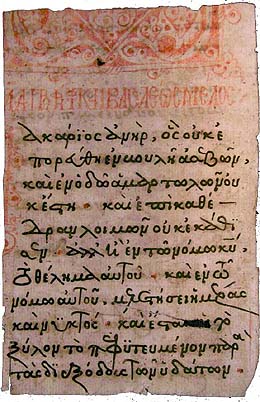 ΒΑΣΙΛΕΩΣ ΜΕΛΟΣ
ακάριος ἀνὴρ, ὃς οὐκ ἐ
πορεύθη ἐν βουλῇ ἀσεβῶν,
καὶ ἐν ὁδῷ ἁμαρτωλῶν οὐ
κ ἔστη · καὶ ἐπὶ καθέ
δραν λοιμῶν οὐκ ἐκάθι
σεν · ἀλλ' ἢ ἐν τῶ νόμω κυ
τὸ θέλημα αὐτοῦ · καὶ ἐν τῶ
νόμω αὐτοῦ, μελετήσει ἡμέρας
καὶ νυκτός · καὶ ἔσται τὸ
ξύλον τὸ πεφυτευμένον παρὰ
τὰς διεξόδους τῶν ὑδάτων